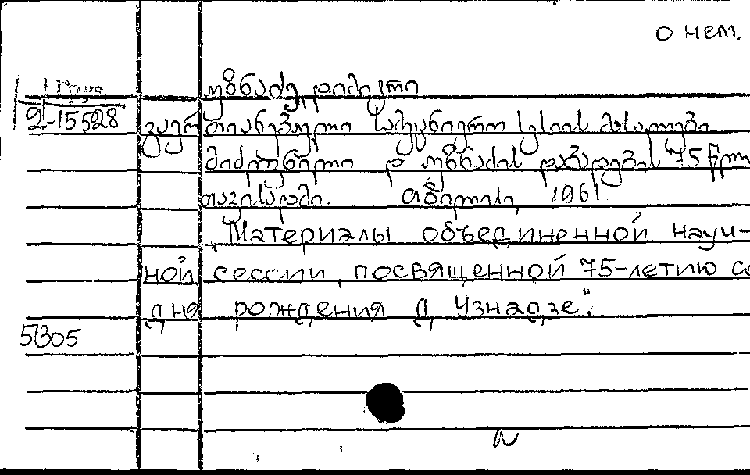 о нем.
Груз
2-15528
უზნაძე, დიმიტრი
გაერთიანებული სამეცნიერო სესიის მასალები
მიძღვნილი დ უზნაძის დაბადების 75 წლის
თავისადმი. თბილისი, 1961.
„Материалы объединенной науч-
ной сессии, посвященной 75-летию со
дня рождения Д Узнадзе".
51305